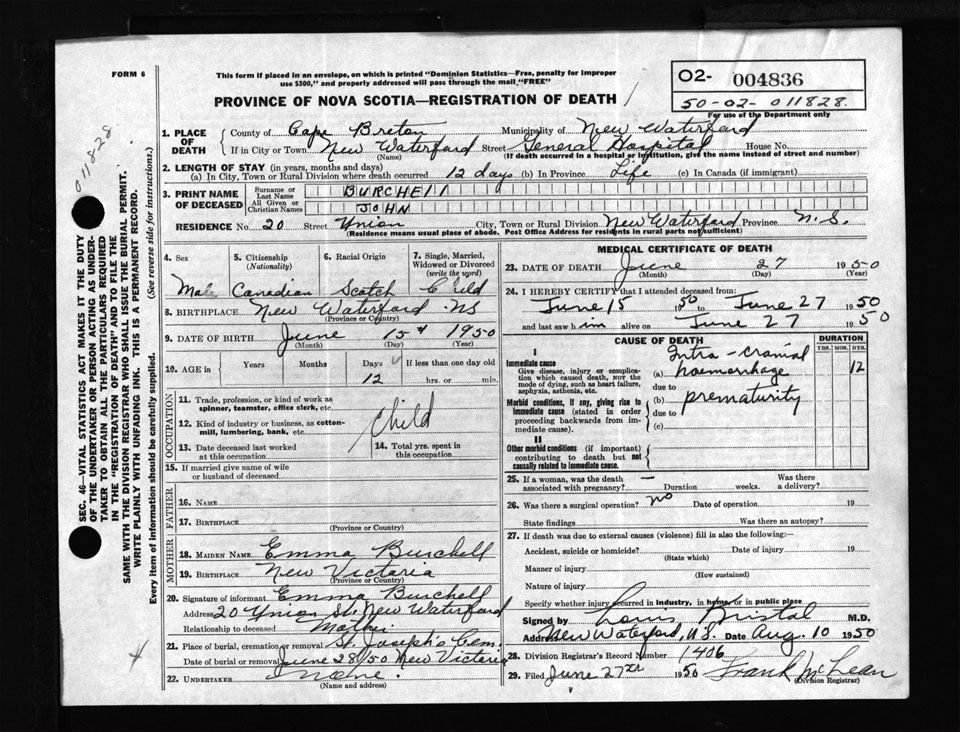 FORM 6
This form if placed in an envelope, on which is printed "Dominion Statistics—Free, penalty for improper
use $300," and properly addressed will pass through the mail "FREE"
O2- 004836
50-02-011828.
For use of the Department only
PROVINCE OF NOVA SCOTIA—REGISTRATION OF DEATH
1. PLACE OF DEATH
County of Cape Breton Municipality of New Waterford
If in City or Town New Waterford Street General Hospital House No.
(Name) (If death occurred in a hospital or institution, give the name instead of street and number)
2. LENGTH OF STAY (in years, months and days)
(a) In City, Town or Rural Division where death occurred 12 days (b) In Province Life (c) In Canada (if immigrant)
3. PRINT NAME OF DECEASED
Surname or Last Name BURCHELL
All Given or Christian Names JOHN
RESIDENCE No. 20 Street Union City, Town or Rural Division New Waterford Province N.S.
(Residence means usual place of abode. Post Office Address for residents in rural parts not sufficient)
4. Sex
Male
5. Citizenship
(Nationality)
Canadian
6. Racial Origin
Scotch
7. Single, Married,
Widowed or Divorced
(write the word)
Child
8. BIRTHPLACE New Waterford NS
(Province or Country)
9. DATE OF BIRTH June 15 1950
(Month) (Day) (Year)
10. AGE in Years Months Days 12 If less than one day old
hrs. or min.
OCCUPATION
11. Trade, profession, or kind of work as
spinner, teamster, office clerk, etc.
12. Kind of industry or business, as cotton-
mill, lumbering, bank, etc.
Child
13. Date deceased last worked
at this occupation
14. Total yrs. spent in
this occupation
15. If married give name of wife
or husband of deceased
FATHER
16. NAME
17. BIRTHPLACE
(Province or Country)
MOTHER
18. MAIDEN NAME Emma Burchell
19. BIRTHPLACE New Victoria
(Province or Country)
20. Signature of informant Emma Burchell
Address 20 Union St. New Waterford
Relationship to deceased Mother
21. Place of burial, cremation or removal St. Joseph's Cem.
Date of burial or removal June 28/50 New Victoria
22. UNDERTAKER None.
(Name and address)
MEDICAL CERTIFICATE OF DEATH
23. DATE OF DEATH June 27 1950
(Month) (Day) (Year)
24. I HEREBY CERTIFY that I attended deceased from:
June 15 1950 to June 27 1950
and last saw him alive on June 27 1950
CAUSE OF DEATH
DURATION
YRS. MOS. DYS.
I
Immediate cause
Give disease, injury or complica-
tion which caused death, not the
mode of dying, such as heart failure,
asphyxia, asthenia, etc.
(a) Intra-cranial
haemorrhage 12
due to
Morbid conditions, if any, giving rise to
immediate cause (stated in order
proceeding backwards from im-
mediate cause).
(b) prematurity
due to
(c)
II
Other morbid conditions (if important)
contributing to death but not
causally related to immediate cause.
25. If a woman, was the death
associated with pregnancy? — Duration weeks. Was there
a delivery?
26. Was there a surgical operation? no Date of operation 19
State findings Was there an autopsy?
27. If death was due to external causes (violence) fill in also the following:—
Accident, suicide or homicide? Date of injury 19
(State which)
Manner of injury
(How sustained)
Nature of injury
Specify whether injury occurred in industry, in home, or in public place
Signed by Louis Bristol M.D.
Address New Waterford, N.S. Date Aug. 10 1950
28. Division Registrar's Record Number 1406
29. Filed June 27 1950 Frank McLean
(Division Registrar)
011828
SEC. 46—VITAL STATISTICS ACT MAKES IT THE DUTY
OF THE UNDERTAKER OR PERSON ACTING AS UNDER-
TAKER TO OBTAIN ALL THE PARTICULARS REQUIRED
IN THE "REGISTRATION OF DEATH" AND TO FILE THE
SAME WITH THE DIVISION REGISTRAR WHO SHALL ISSUE THE BURIAL PERMIT.
WRITE PLAINLY WITH UNFADING INK. THIS IS A PERMANENT RECORD.
Every item of information should be carefully supplied. (See reverse side for instructions.)